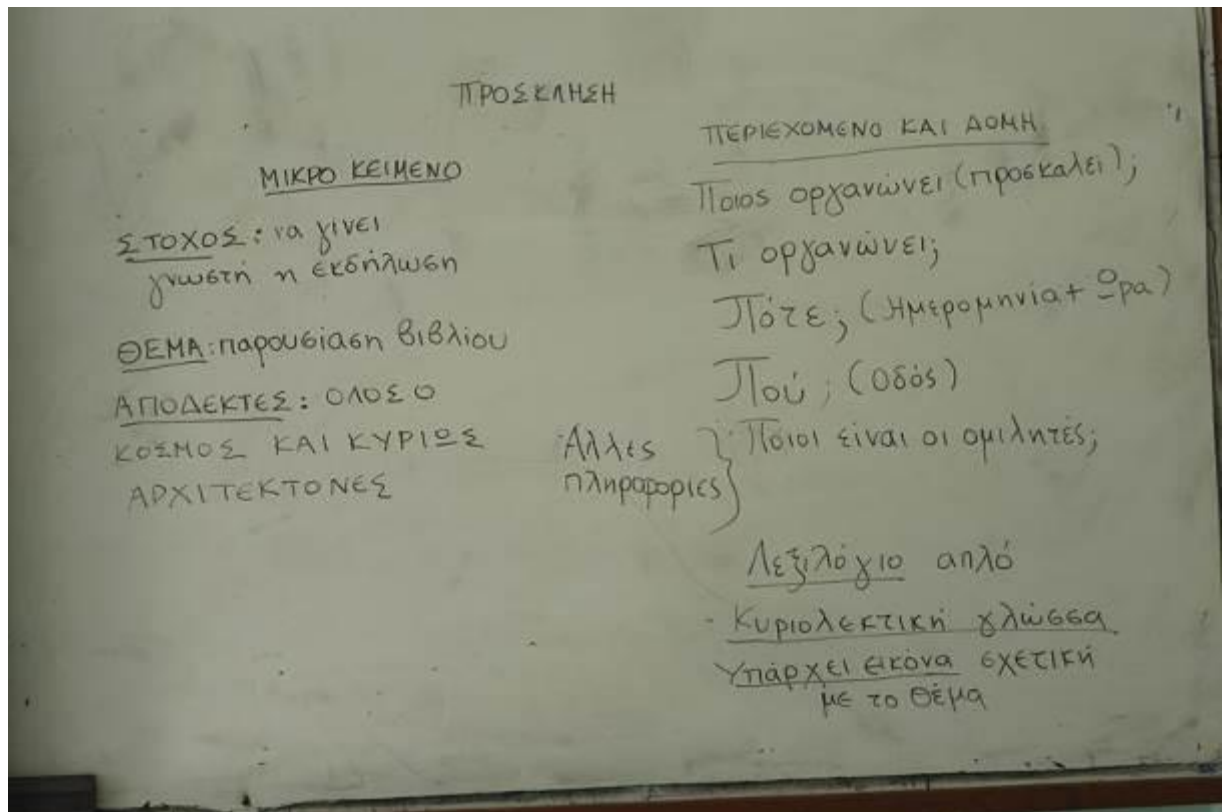 ΠΡΟΣΚΛΗΣΗ
ΜΙΚΡΟ ΚΕΙΜΕΝΟ
ΣΤΟΧΟΣ: να γίνει
γνωστή η εκδήλωση
ΘΕΜΑ: παρουσίαση βιβλίου
ΑΠΟΔΕΚΤΕΣ: ΟΛΟΣ Ο
ΚΟΣΜΟΣ ΚΑΙ ΚΥΡΙΩΣ
ΑΡΧΙΤΕΚΤΟΝΕΣ
ΠΕΡΙΕΧΟΜΕΝΟ ΚΑΙ ΔΟΜΗ
Ποιος οργανώνει (προσκαλεί);
Τι οργανώνει;
Πότε; (Ημερομηνία + Ώρα)
Πού; (Οδός)
Άλλες
πληροφορίες
Ποιοι είναι οι ομιλητές;
Λεξιλόγιο απλό
- Κυριολεκτική γλώσσα
Υπάρχει εικόνα σχετική
με το θέμα